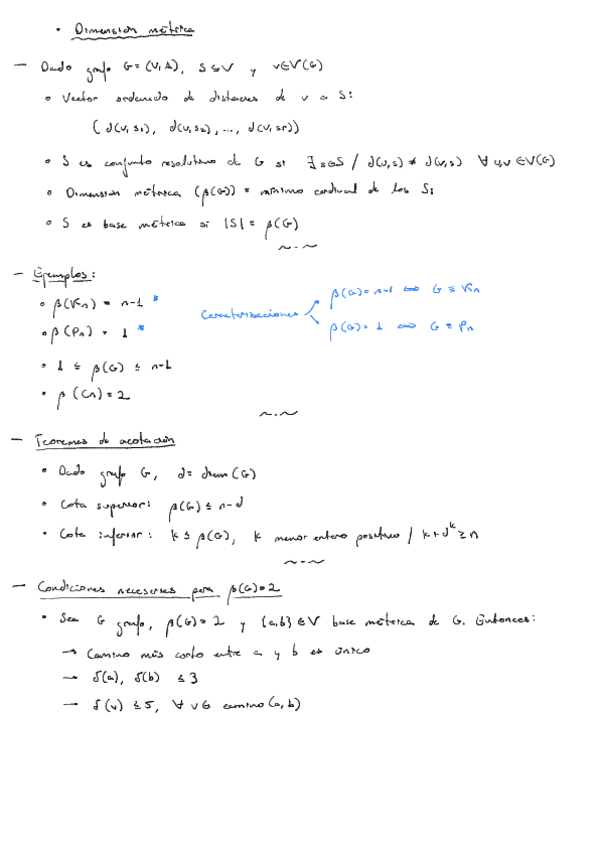 • Dimensión métrica
— Dado grafo G = (V, A), S ⊆ V y v ∈ V(G)
• Vector ordenado de distancias de v a S:
(d(v, s1), d(v, s2), ..., d(v, sr))
• S es conjunto resolutivo de G si ∃ s ∈ S / d(u, s) ≠ d(v, s) ∀ u, v ∈ V(G)
• Dimensión métrica (β(G)) = mínimo cardinal de los Si
• S es base métrica si |S| = β(G)
— Ejemplos:
• β(Kn) = n-1 *
• β(Pn) = 1 *
Caracterizaciones
β(G) = n-1 ⟺ G ≡ Kn
β(G) = 1 ⟺ G ≡ Pn
• 1 ≤ β(G) ≤ n-1
• β(Cn) = 2
— Teoremas de acotación
• Dado grafo G, d = diam(G)
• Cota superior: β(G) ≤ n-d
• Cota inferior: k ≤ β(G), k menor entero positivo / k + d^k ≥ n
— Condiciones necesarias para β(G) = 2
• Sea G grafo, β(G) = 2 y {a, b} ∈ V base métrica de G. Entonces:
→ Camino más corto entre a y b es único
→ δ(a), δ(b) ≤ 3
→ δ(v) ≤ 5, ∀ v ∈ camino(a, b)